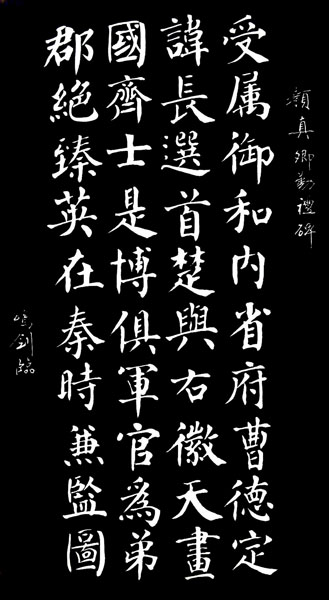 顏真卿勤禮碑
受属御和内省府曹德定
諱長選首楚與右徽天畫
國齊士是博俱軍官為弟
郡絶臻英在秦時兼監圖
鳴劍臨